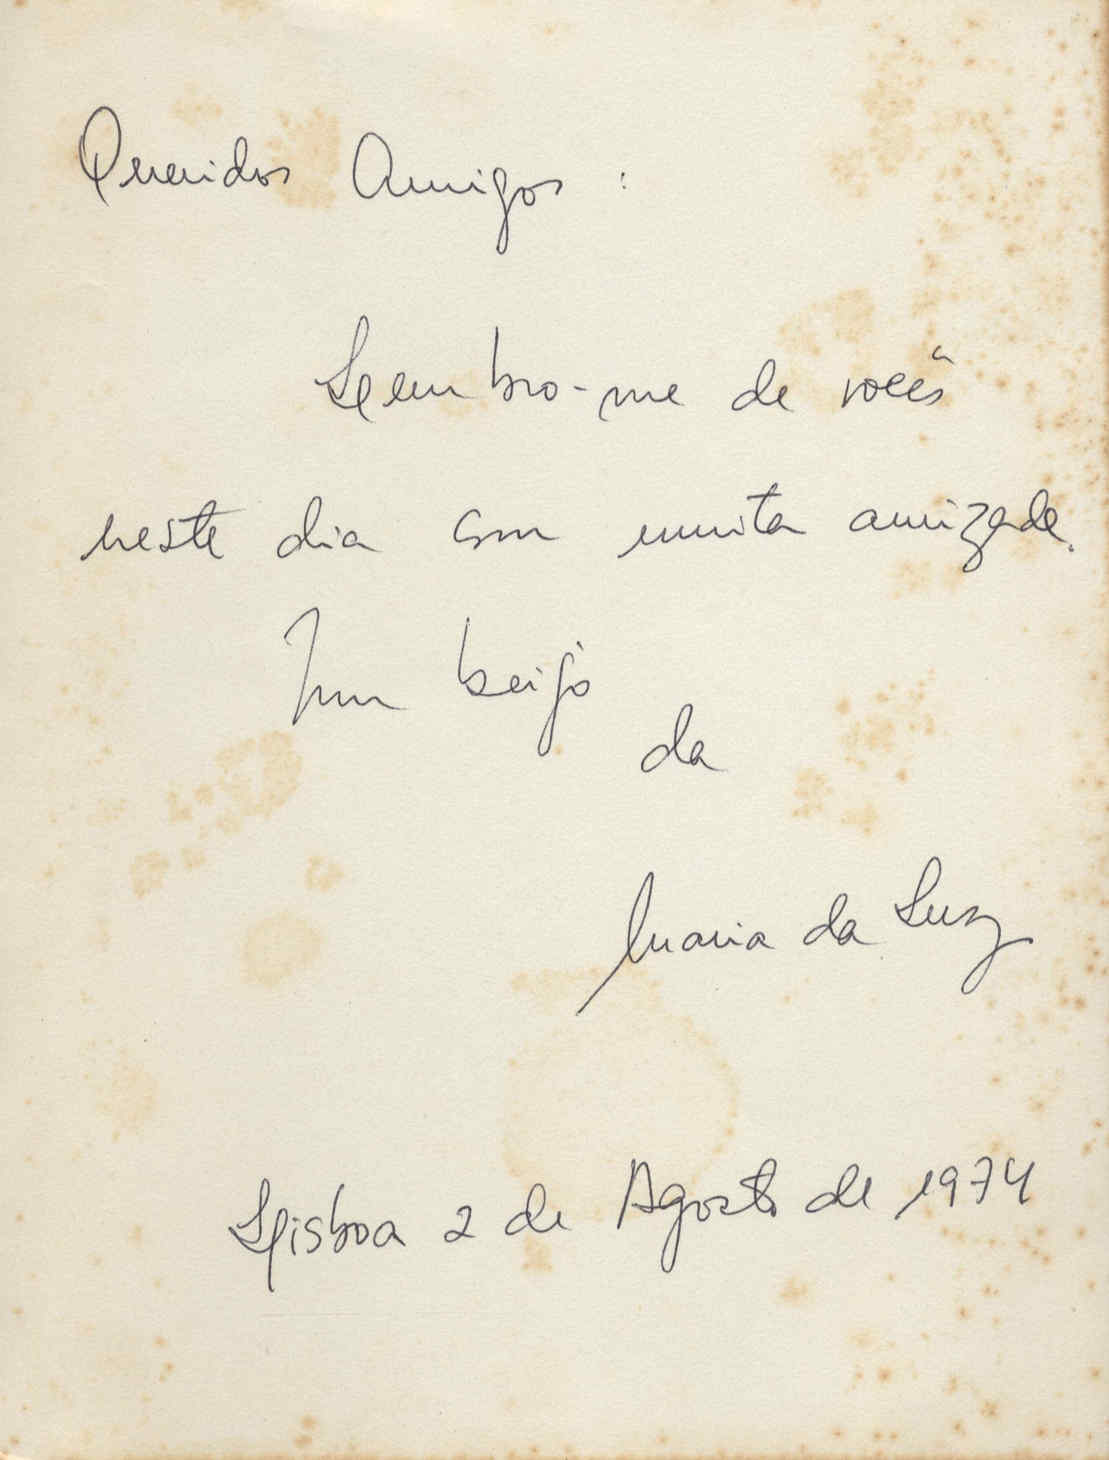 Queridos Amigos :
Lembro-me de vocês
neste dia com muita amizade.
Um beijo
da
Maria da Luz
Lisboa 2 de Agosto de 1974